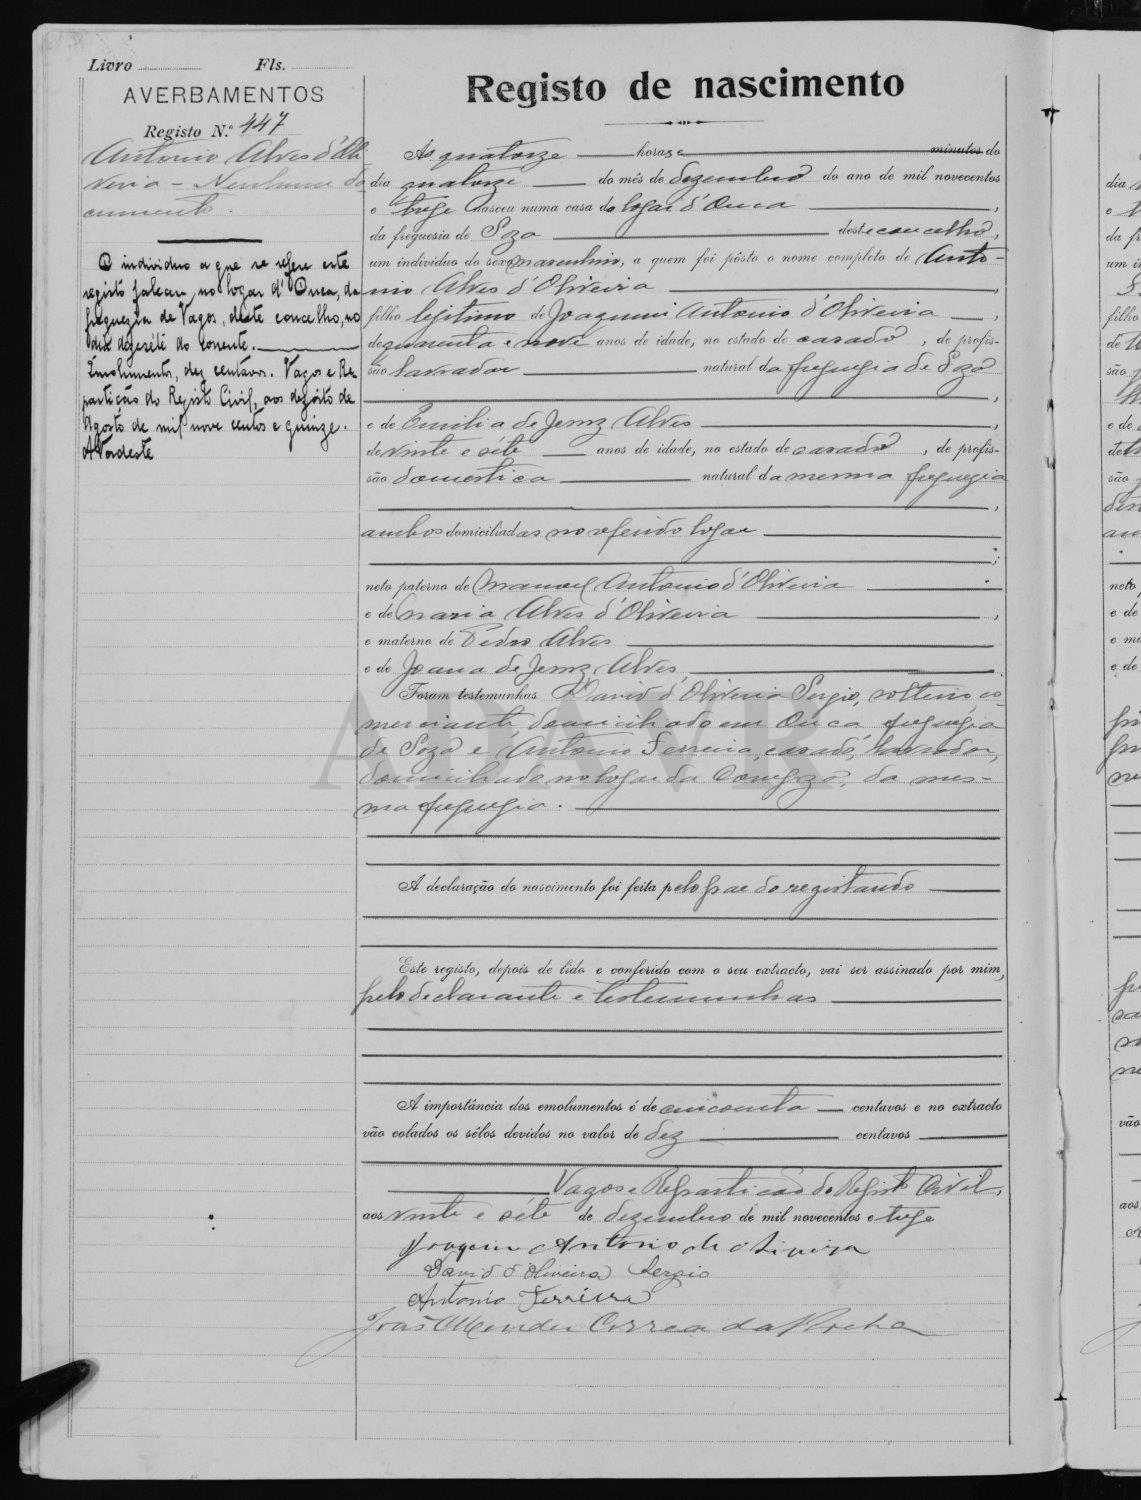 Livro Fls.
AVERBAMENTOS
Registo N.º 447
Antonio Alves d'Oli
veira - Nenhum do
cumento.
O individuo a que se refere este
registo faleceu no logar d'Ouca, da
freguezia de Vagos, deste concelho, no
dia dezesete do corrente.
Emolumentos, dez centavos. Vagos e Re-
partição do Registo Civil, aos dezoito de
Agosto de mil nove centos e quinze.
Registo de nascimento
Ás quatorze horas e minutos do
dia quatorze do mês de dezembro do ano de mil novecentos
e treze nasceu numa casa do logar d'Ouca ,
da freguesia de Soza deste concelho,
um indivíduo do sexo masculino, a quem foi pôsto o nome completo de Anto-
nio Alves d'Oliveira ,
filho legitimo de Joaquim Antonio d'Oliveira ,
de quarenta e nove anos de idade, no estado de casado , de profis-
são lavrador natural da freguezia de Soza
,
e de Emilia de Jesuz Alves ,
de vinte e séte anos de idade, no estado de casada , de profis-
são domestica natural da mesma freguezia
,
ambos domiciliados no referido logar
;
neto paterno de Manoel Antonio d'Oliveira
e de Maria Alves d'Oliveira ,
e materno de Pedro Alves
e de Joana de Jesuz Alves.
Foram testemunhas David d'Oliveira Sergio, solteiro, co-
merciante, domiciliado em Ouca, freguezia
de Soza e Antonio Ferreira, casado, lavrador,
domiciliado no logar da , da mes-
ma freguezia.
A declaração do nascimento foi feita pelo pae do registando
Este registo, depois de lido e conferido com o seu extracto, vai ser assinado por mim,
pelo declarante e testemunhas
A importância dos emolumentos é de cincoenta centavos e no extracto
vão colados os sêlos devidos no valor de dez centavos
Vagos e Repartição do Registo Civil,
aos vinte e séte de dezembro de mil novecentos e treze
Joaquim Antonio de Oliveira
David d'Oliveira Sergio
Antonio Ferreira
João Mendes Correa da Rocha
ADAVR